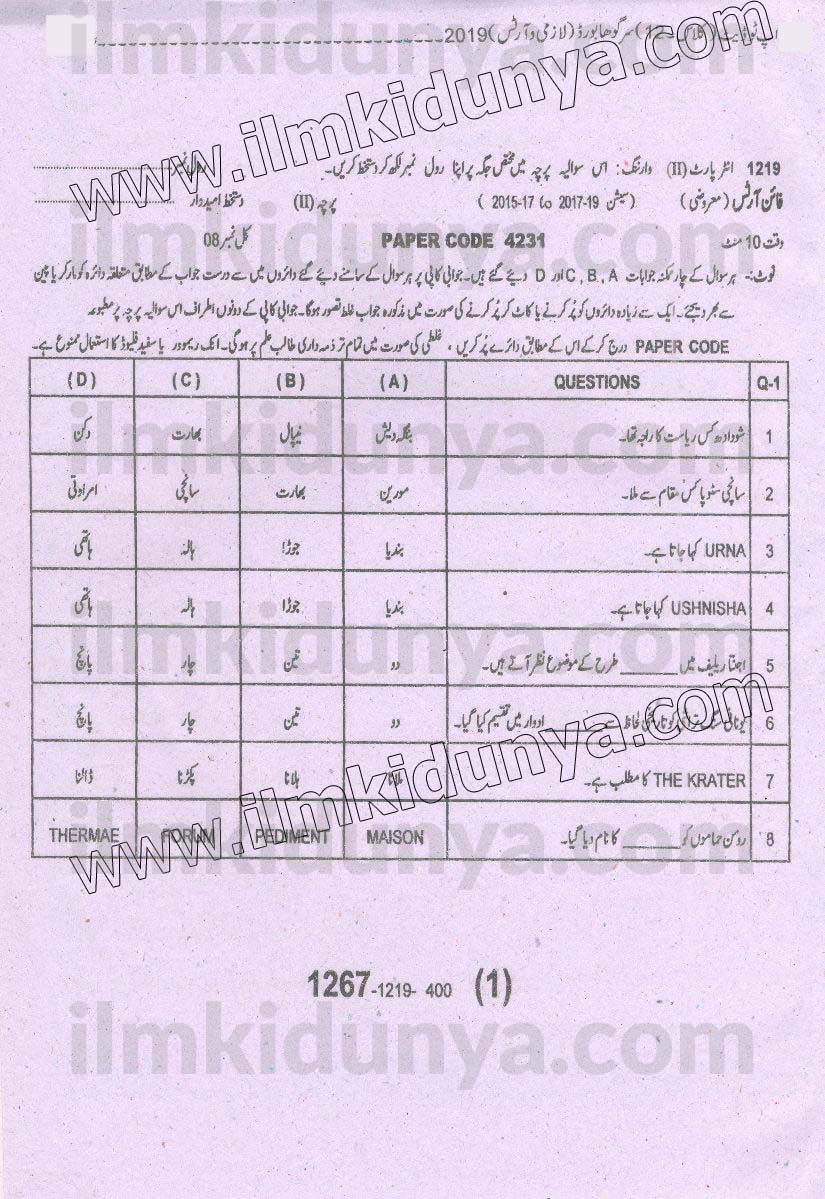 سرگودھا بورڈ (لازمی و آرٹس) 2019
1219 انٹر پارٹ (II) وارننگ: اس سوالیہ پرچہ میں مختص جگہ پر اپنا رول نمبر لکھ کر دستخط کریں۔
فائن آرٹس (معروضی) (سیشن 2015-17 to 2017-19) پرچہ (II) دستخط امیدوار
وقت 10 منٹ PAPER CODE 4231 کل نمبر 08
نوٹ:- ہر سوال کے چار ممکنہ جوابات A ,B ,C اور D دیئے گئے ہیں۔ جوابی کاپی پر ہر سوال کے سامنے دیئے گئے دائروں میں سے درست جواب کے مطابق متعلقہ دائرہ کو مارکر یا پین
سے بھر دیجئے۔ ایک سے زیادہ دائروں کو پُر کرنے یا کاٹ کر پُر کرنے کی صورت میں مذکورہ جواب غلط تصور ہوگا۔ جوابی کاپی کے دونوں اطراف اس سوالیہ پرچہ پر مطبوعہ
PAPER CODE درج کرکے اس کے مطابق دائرے پُر کریں، غلطی کی صورت میں تمام تر ذمہ داری طالب علم پر ہوگی۔ انک ریموور یا سفید فلیوڈ کا استعمال ممنوع ہے۔
Q-1 QUESTIONS (A) (B) (C) (D)
1 شودادھ کس ریاست کا راجہ تھا۔ بنگلہ دیش نیپال بھارت دکن
2 سانچی سٹوپا کس مقام سے ملا۔ مورین بھارت سانچی امراوتی
3 URNA کہا جاتا ہے۔ بندیا جوڑا ہالہ ہاتھی
4 USHNISHA کہا جاتا ہے۔ بندیا جوڑا ہالہ ہاتھی
5 اجنتا ریلیف میں ______ طرح کے موضوع نظر آتے ہیں۔ دو تین چار پانچ
6 ادوار میں تقسیم کیا گیا۔ دو تین چار پانچ
7 THE KRATER کا مطلب ہے۔ ملانا ہلانا پکڑنا ڈالنا
8 رومن حماموں کو ______ کا نام دیا گیا۔ MAISON PEDIMENT FORUM THERMAE
1267-1219- 400 (1)
www.ilmkidunya.com
www.ilmkidunya.com
ilmkidunya.com
ilmkidunya.com
ilmkidunya.com
ilmkidunya.com
ilmkidunya.com